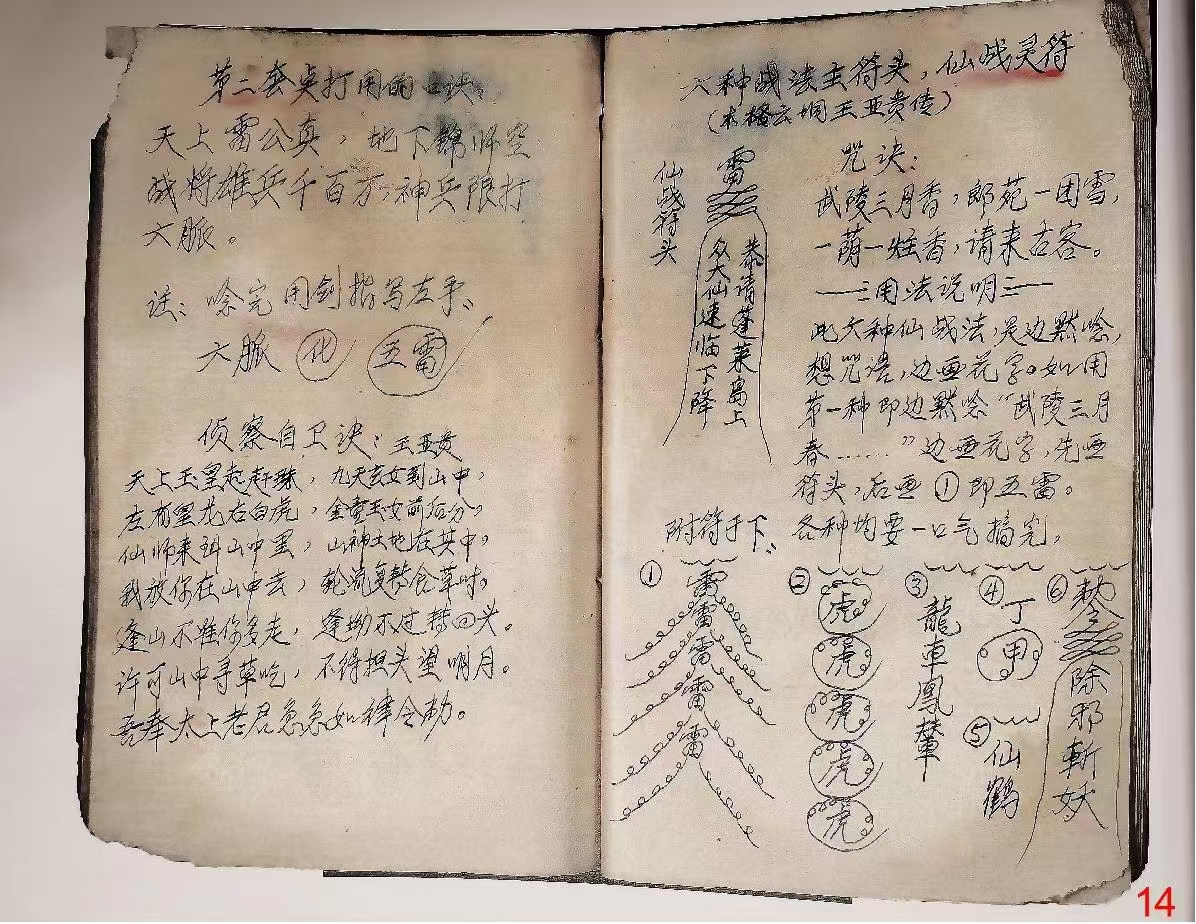 第二套桌打用的口诀:
天上雷公真，地下锦师空
战将雄兵千百万，神兵限打
六脈。
注：唸完用剑指写左手:
六脈 化 五雷
侦察自卫诀：王亚贵
天上玉皇起赶珠，九天玄女到山中，
左有黑龙右白虎，金童玉女前后分。
仙师来到山中里，山神土地在其中，
我放你在山中去，轮流复转食草味。
逢山不准你多走，逢坳不过转回头。
许可山中寻草吃，不得抬头望明月。
吾奉太上老君急急如律令勅。
六种战法主符头，仙战灵符
（木格云垌王亚贵传）
仙战符头
雷
恭请蓬莱岛上
众大仙速临下降
咒诀：
武陵三月香，郎苑一团雪，
一荫一炷香，请来古客。
用法说明
此六种仙战法，是边默唸，
想咒语，边画花字。如用
第一种即边默唸“武陵三月
春……”边画花字，先画
符头，后画①即五雷。
各种均要一口气搞完，
附符于下:
① 雷雷雷雷雷
② 虎虎虎虎虎
③ 龍車鳳輦
④ 丁甲
⑤ 仙鹤
⑥ 勅令 除邪斬妖
14